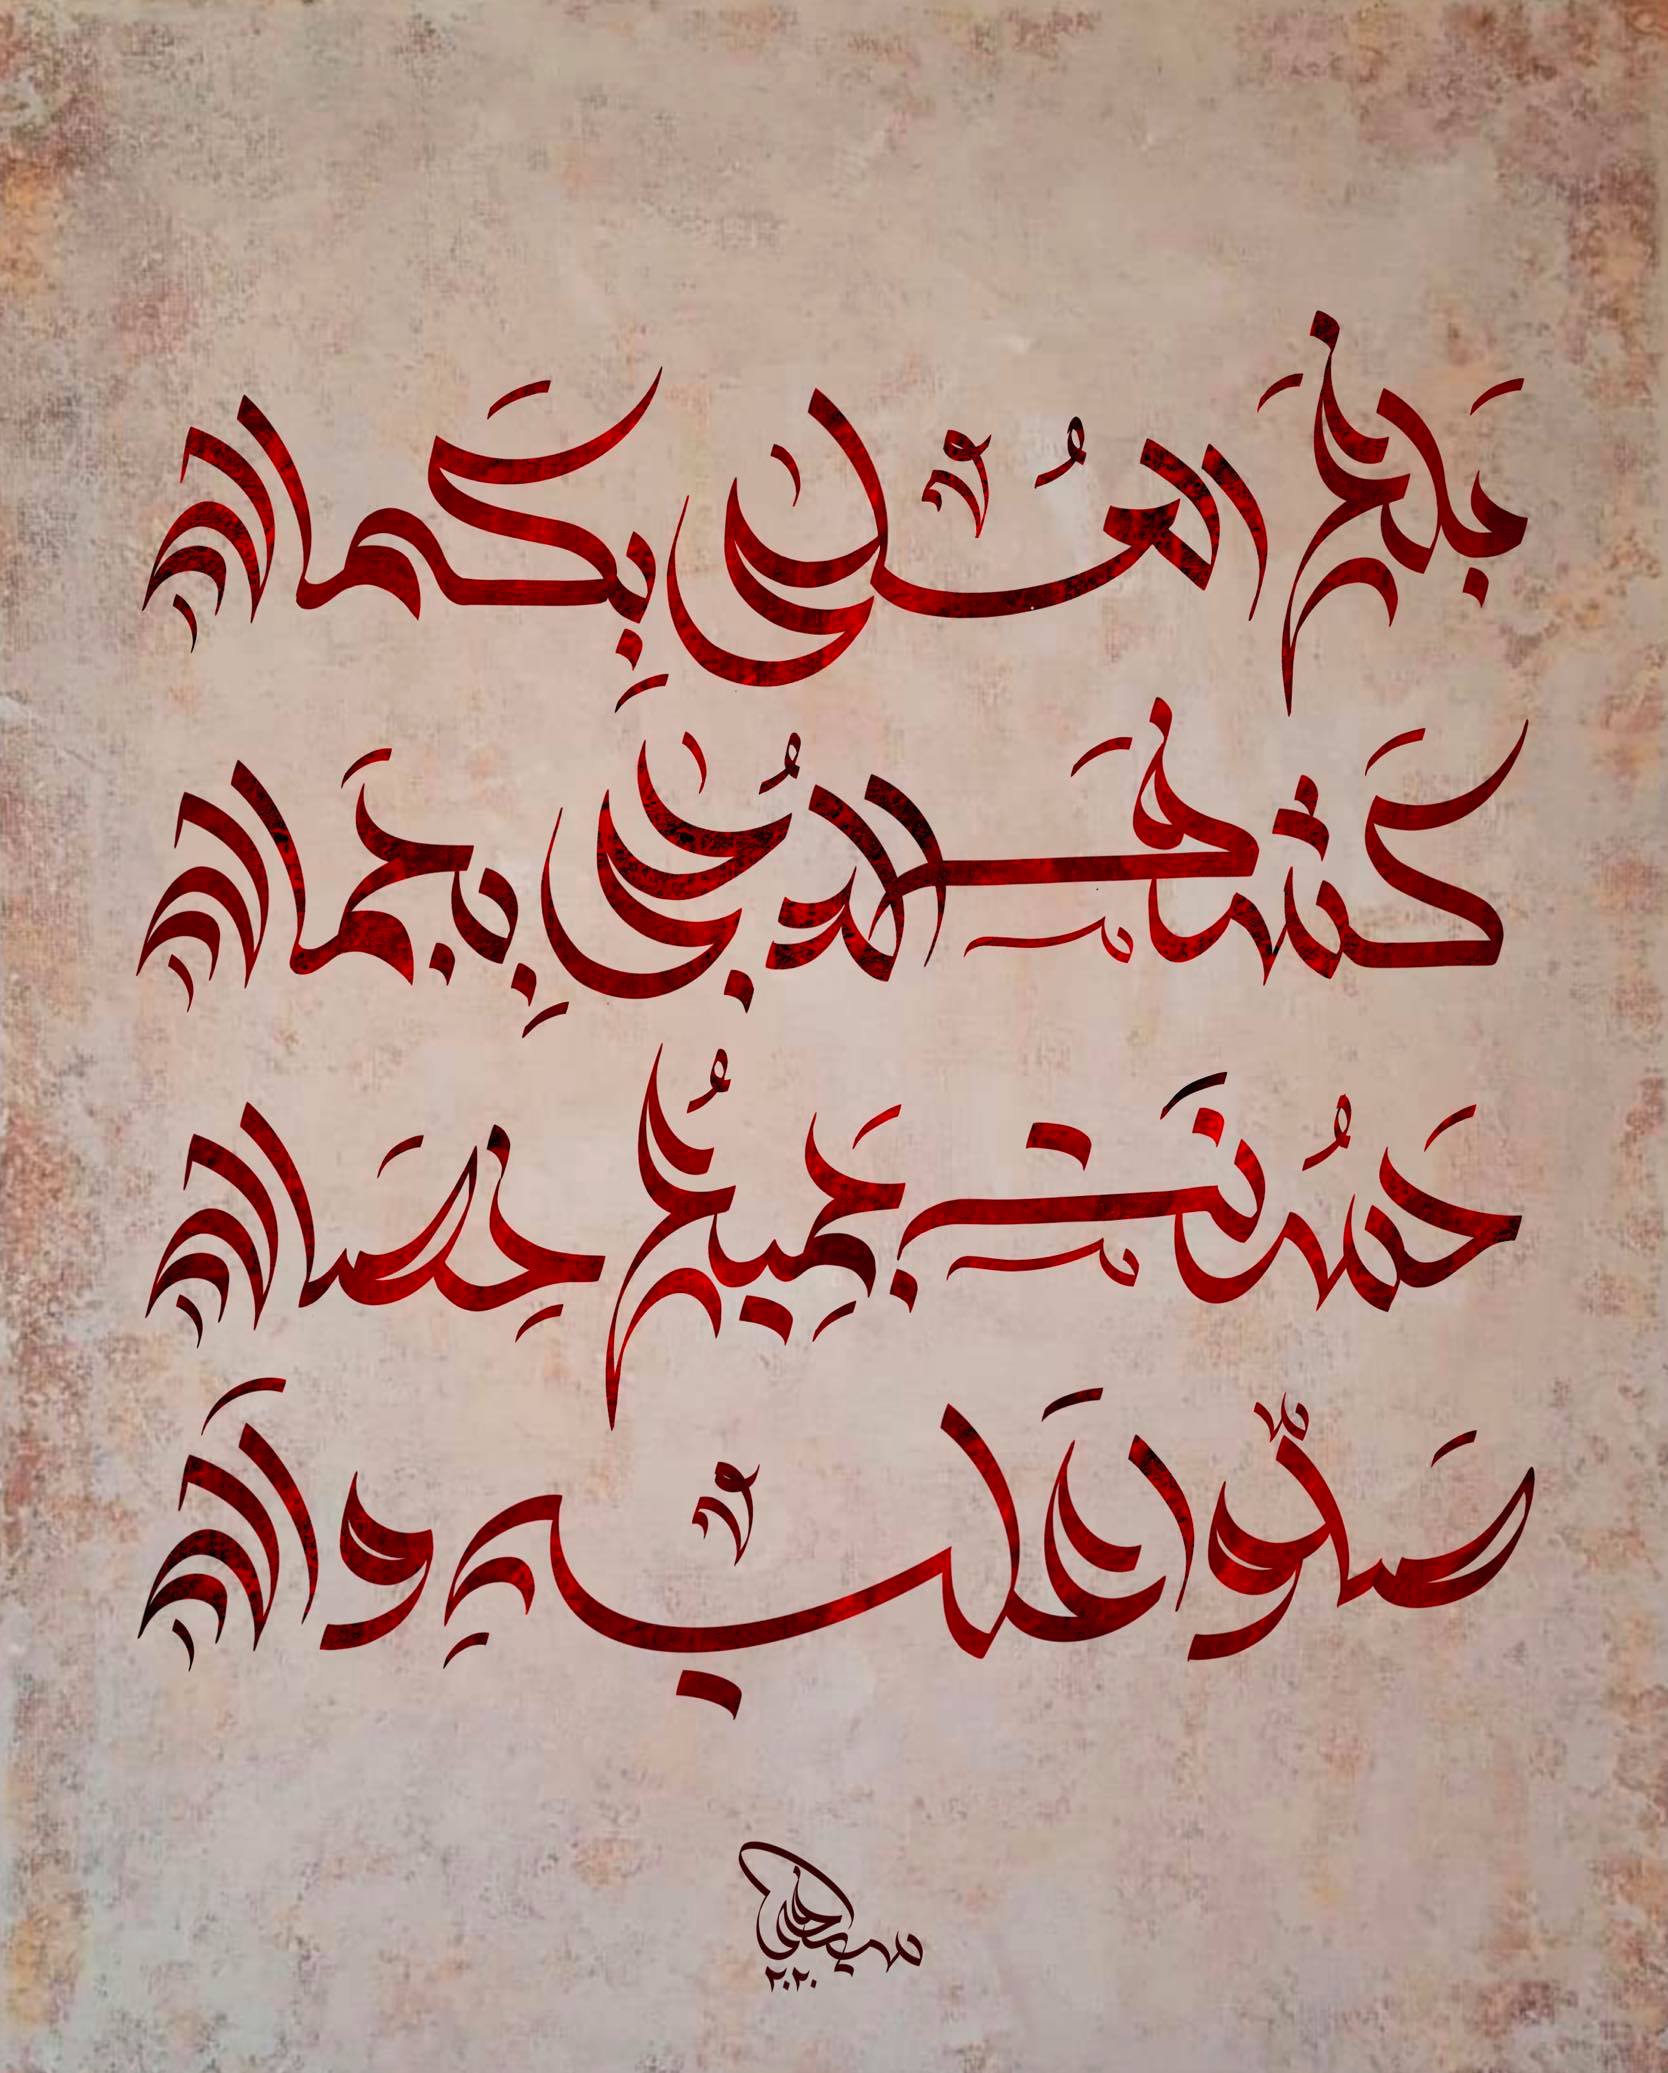 بَلَغَ العُلىٰ بِكَمالِهِ
كَشَفَ الدُّجىٰ بِجَمالِهِ
حَسُنَتْ جَميعُ خِصالِهِ
صَلّوا عَليهِ وَآلِهِ
٢٠٢٠